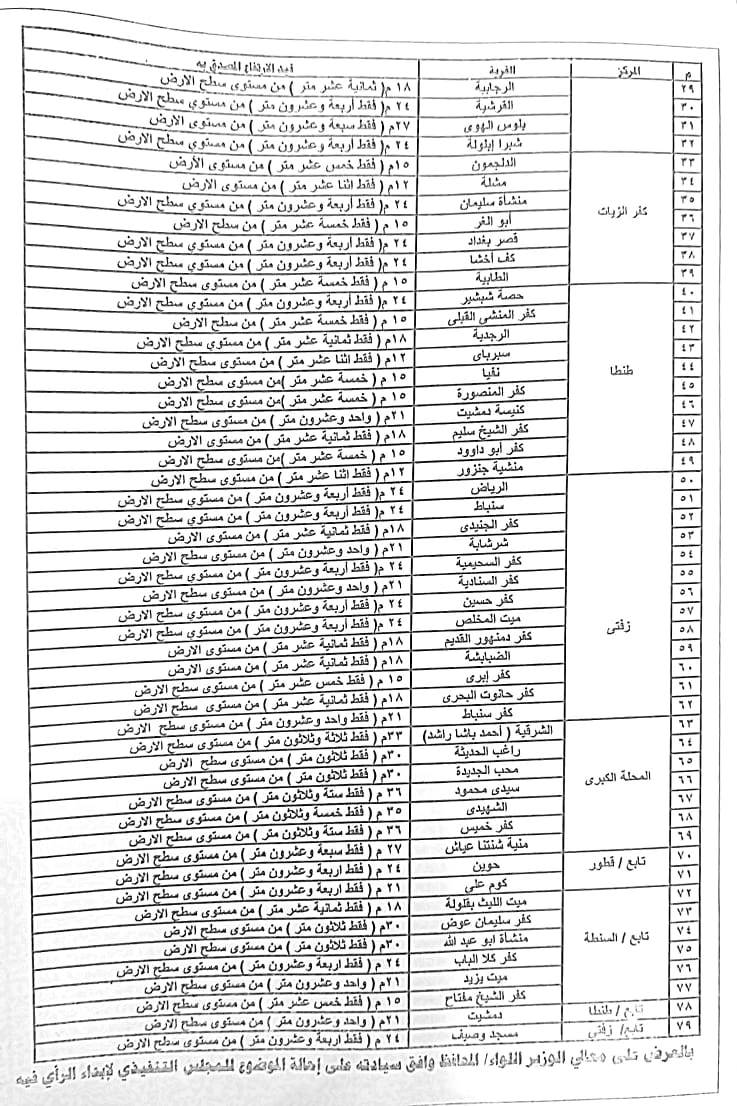 م المركز القرية قيد الارتفاع المصدق به
٢٩ الرجابية ١٨ م( ثمانية عشر متر ) من مستوى سطح الارض
٣٠ القرشية ٢٤ م( فقط أربعة وعشرون متر ) من مستوي سطح الارض
٣١ بلوس الهوى ٢٧م ( فقط سبعة وعشرون متر ) من مستوى سطح الأرض
٣٢ شبرا إبلولة ٢٤ م( فقط أربعة وعشرون متر ) من مستوي سطح الارض
٣٣ كفر الزيات الدلجمون ١٥م ( فقط خمس عشر متر ) من مستوى سطح الأرض
٣٤ مشلة ١٢م ( فقط اثنا عشر متر ) من مستوى سطح الارض
٣٥ منشأة سليمان ٢٤ م( فقط أربعة وعشرون متر ) من مستوي سطح الارض
٣٦ أبو الغر ١٥ م ( فقط خمسة عشر متر ) من سطح الارض
٣٧ قصر بغداد ٢٤ م( فقط أربعة وعشرون متر ) من مستوي سطح الارض
٣٨ كف أخشا ٢٤ م( فقط أربعة وعشرون متر ) من مستوي سطح الارض
٣٩ الطابية ١٥ م ( فقط خمسة عشر متر ) من مستوى سطح الارض
٤٠ طنطا حصة شبشير ٢٤ م( فقط أربعة وعشرون متر ) من مستوي سطح الارض
٤١ كفر المنشى القبلى ١٥ م ( فقط خمسة عشر متر ) من سطح الارض
٤٢ الرجدية ١٨م ( فقط ثمانية عشر متر ) من مستوي سطح الارض
٤٣ سبرباى ١٢م ( فقط اثنا عشر متر ) من مستوى سطح الارض
٤٤ نفيا ١٥ م ( خمسة عشر متر )من مستوى سطح الارض
٤٥ كفر المنصورة ١٥ م ( فقط خمسة عشر متر )من مستوى سطح الارض
٤٦ كنيسة دمشيت ٢١م ( واحد وعشرون متر )من مستوى سطح الارض
٤٧ كفر الشيخ سليم ١٨م ( فقط ثمانية عشر متر ) من مستوى سطح الارض
٤٨ كفر أبو داوود ١٥ م ( خمسة عشر متر )من مستوى سطح الارض
٤٩ منشية جنزور ١٢م ( فقط اثنا عشر متر ) من مستوى سطح الارض
٥٠ زفتى الرياض ٢٤ م( فقط أربعة وعشرون متر ) من مستوي سطح الارض
٥١ سنباط ٢٤ م( فقط أربعة وعشرون متر ) من مستوي سطح الارض
٥٢ كفر الجنيدى ١٨م ( فقط ثمانية عشر متر ) من مستوى سطح الارض
٥٣ شرشابة ٢١م ( واحد وعشرون متر ) من مستوى سطح الارض
٥٤ كفر السحيمية ٢٤ م( فقط أربعة وعشرون متر ) من مستوي سطح الارض
٥٥ كفر السنادية ٢١م ( واحد وعشرون متر ) من مستوى سطح الارض
٥٦ كفر حسين ٢٤ م( فقط أربعة وعشرون متر ) من مستوي سطح الارض
٥٧ ميت المخلص ٢٤ م( فقط أربعة وعشرون متر ) من مستوي سطح الارض
٥٨ كفر دمنهور القديم ١٨م ( فقط ثمانية عشر متر ) من مستوى سطح الارض
٥٩ الضبابشة ١٨م ( فقط ثمانية عشر متر ) من مستوى سطح الارض
٦٠ كفر إبرى ١٥ م ( فقط خمس عشر متر ) من مستوى سطح الارض
٦١ كفر حانوت البحرى ١٨م ( فقط ثمانية عشر متر ) من مستوى سطح الارض
٦٢ كفر سنباط ٢١م ( فقط واحد وعشرون متر ) من مستوى سطح الارض
٦٣ المحلة الكبرى الشرقية ( أحمد باشا راشد) ٣٣م ( فقط ثلاثة وثلاثون متر ) من مستوى سطح الارض
٦٤ راغب الحديثة ٣٠م ( فقط ثلاثون متر ) من مستوى سطح الارض
٦٥ محب الجديدة ٣٠م ( فقط ثلاثون متر ) من مستوى سطح الارض
٦٦ سيدى محمود ٣٦ م ( فقط ستة وثلاثون متر ) من مستوى سطح الارض
٦٧ الشهيدى ٣٥ م ( فقط خمسة وثلاثون متر ) من مستوى سطح الارض
٦٨ كفر خميس ٣٦ م ( فقط ستة وثلاثون متر ) من مستوى سطح الارض
٦٩ منية شنتنا عياش ٢٧ م ( فقط سبعة وعشرون متر ) من مستوى سطح الارض
٧٠ تابع / قطور حوين ٢٤ م ( فقط اربعة وعشرون متر ) من مستوى سطح الارض
٧١ كوم على ٢١ م ( فقط اربعة وعشرون متر ) من مستوى سطح الارض
٧٢ تابع / السنطة ميت الليث بقلولة ١٨ م ( فقط ثمانية عشر متر ) من مستوى سطح الارض
٧٣ كفر سليمان عوض ٣٠م ( فقط ثلاثون متر ) من مستوى سطح الارض
٧٤ منشأة ابو عبد الله ٣٠م ( فقط ثلاثون متر ) من مستوى سطح الارض
٧٥ كفر كلا الباب ٢٤ م ( فقط اربعة وعشرون متر ) من مستوى سطح الارض
٧٦ ميت يزيد ٢١م ( واحد وعشرون متر ) من مستوى سطح الارض
٧٧ كفر الشيخ مفتاح ١٥ م ( فقط خمس عشر متر ) من مستوى سطح الارض
٧٨ تابع / طنطا دمشيت ٢١م ( واحد وعشرون متر ) من مستوى سطح الارض
٧٩ تابع/ زفتى مسجد وصيف ٢٤ م ( فقط أربعة وعشرون متر ) من مستوى سطح الارض
بالعرض على معالي الوزير اللواء/ المحافظ وافق سيادته على إحالة الموضوع للمجلس التنفيذي لإبداء الرأي فيه